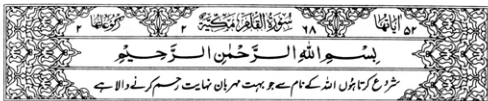 اٰیَاتُهَا ۵۲ ۶۸ سُوْرَةُ الْقَلَمِ مَكِّيَّةٌ ۲ رُكُوْعَاتُهَا ۲
بِسْمِ اللّٰهِ الرَّحْمٰنِ الرَّحِيْمِ
شروع کرتا ہوں اللہ کے نام سے جو بہت مہربان نہایت رحم کرنے والا ہے